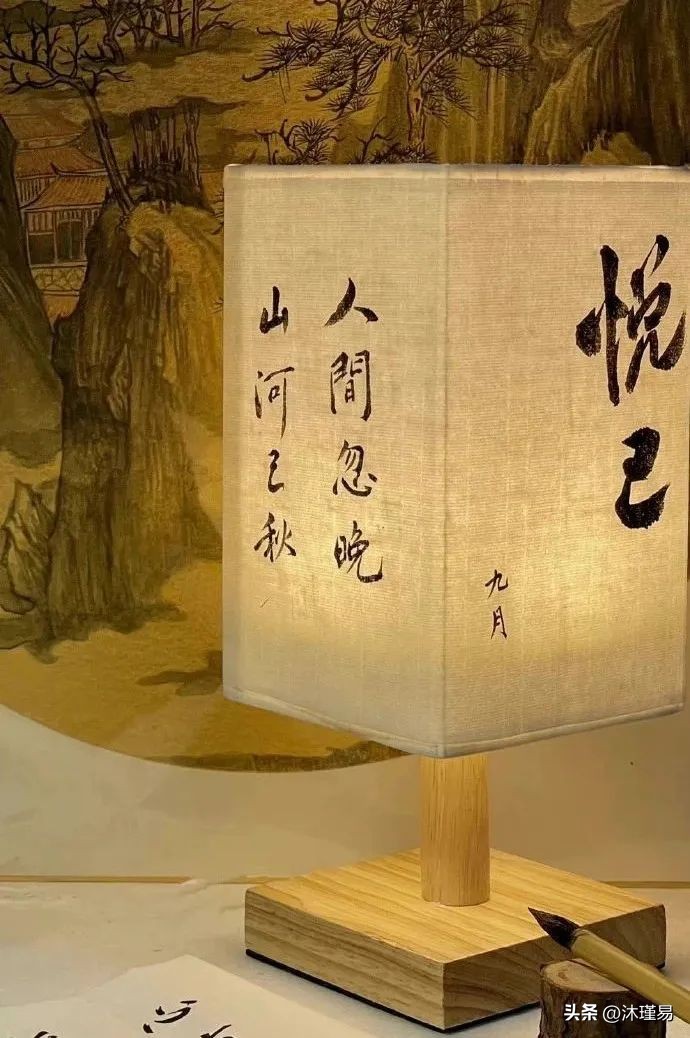 人間忽晚
山河已秋
悦己
九月
头条 @沐瑾易